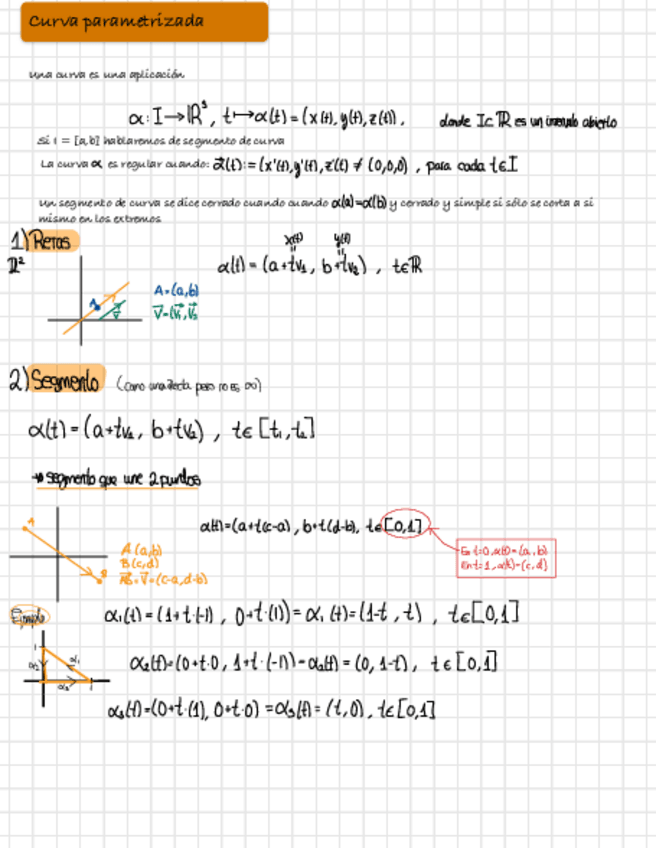 Curva parametrizada
una curva es una aplicación
α: I→ℝ³, t↦α(t)=(x(t), y(t), z(t)), donde I⊂ℝ es un intervalo abierto
Si I = [a,b] hablaremos de segmento de curva
La curva α es regular cuando: α'(t):=(x'(t),y'(t),z'(t)) ≠ (0,0,0), para cada t∈I
un segmento de curva se dice cerrado cuando cuando α(a)=α(b) y cerrado y simple si sólo se corta a si
mismo en los extremos
1) Retas
x(t) y(t)
ℝ²
α(t) = (a+tv₁, b+tv₂), t∈ℝ
A
A=(a,b)
v
v=(v₁,v₂
2) Segmento (como una recta pero no es ∞)
α(t) = (a+tv₁, b+tv₂), t∈[t₁,t₂]
→ segmento que une 2 puntos
α(t)=(a+t(c-a), b+t(d-b), t∈[0,1]
A
B
A(a,b)
B(c,d)
AB=v=(c-a,d-b)
En t=0, α(t)=(a,b)
En t=1, α(t)=(c,d)
Ejemplo
α₁(t) = (1+t·(-1), 0+t·(1)) = α₁(t)=(1-t, t), t∈[0,1]
1
α₂ α₁
α₃ 1
α₂(t)=(0+t·0, 1+t·(-1))=α₂(t) = (0, 1-t), t∈[0,1]
α₃(t)=(0+t·(1), 0+t·0) =α₃(t) = (t,0), t∈[0,1]